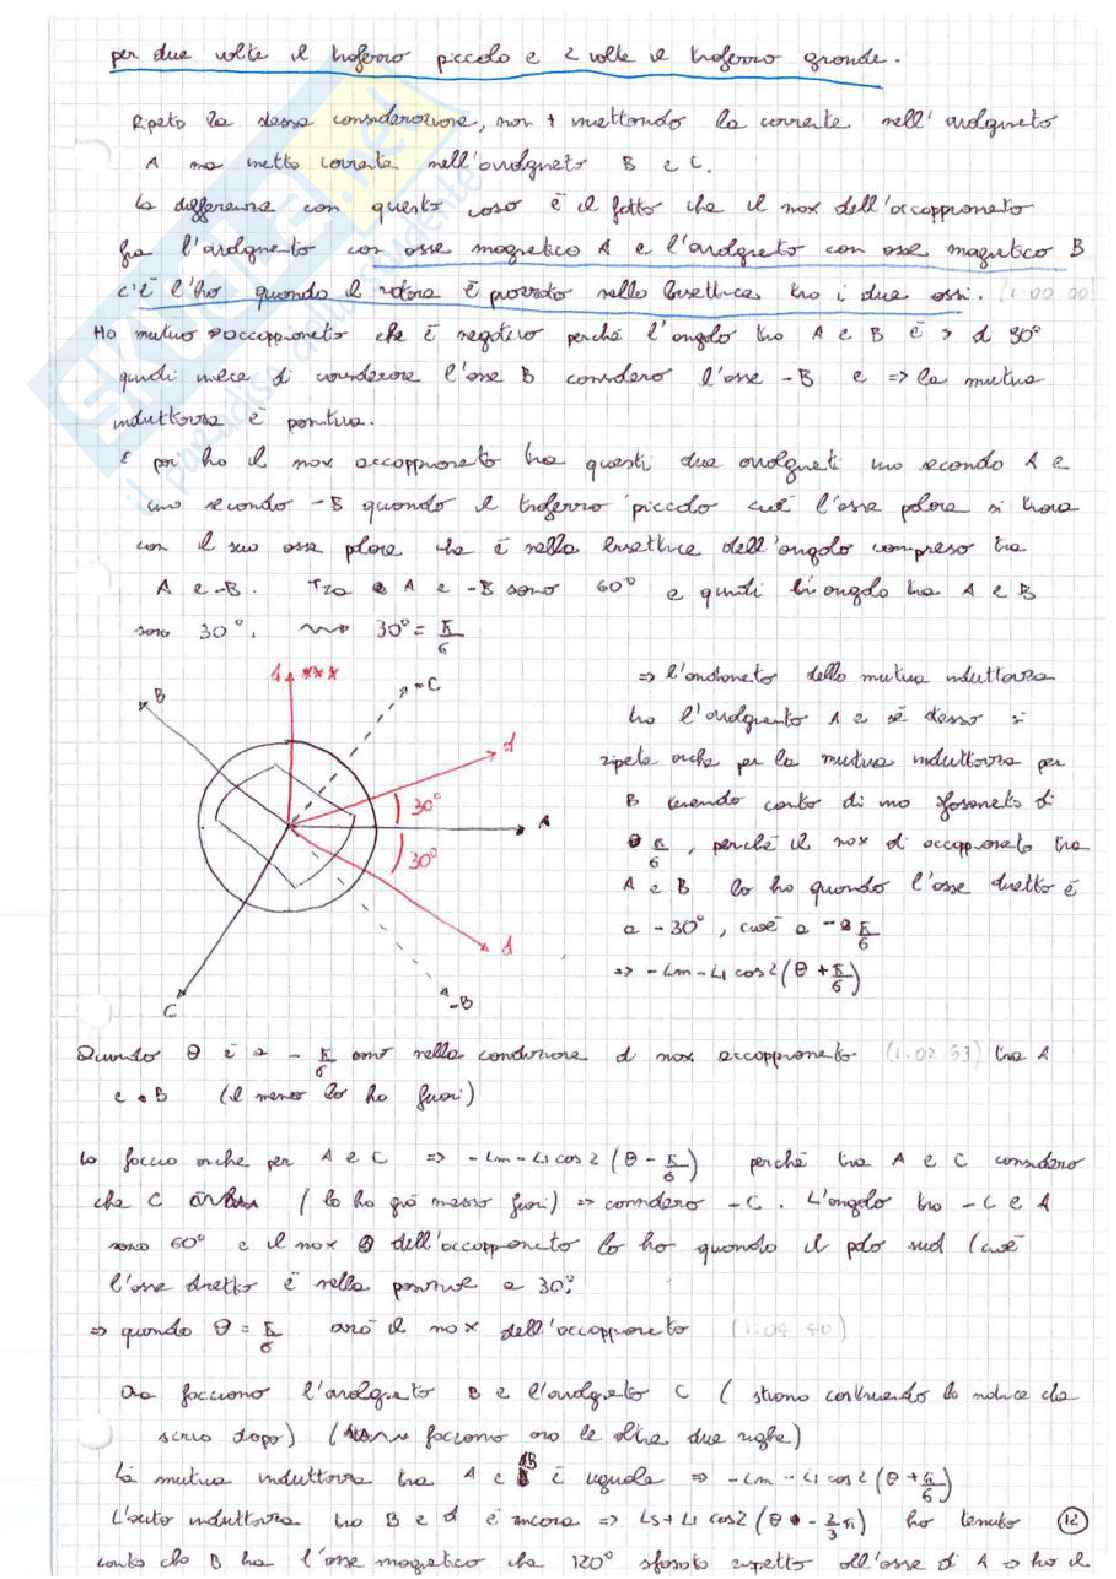 per due volte il traferro piccolo e 2 volte il traferro grande.
Ripeto la stessa considerazione, non + mettendo la corrente nell'avvolgimento
A ma metto corrente nell'avvolgimento B e C.
La differenza con questo caso è il fatto che il max dell'accoppiamento
fra l'avvolgimento con asse magnetico A e l'avvolgimento con asse magnetico B
c'è l'ho quando il rotore è piazzato nella bisettrice tra i due assi. (1.00.00
Ho mutuo accoppiamento che è negativo perché l'angolo tra A e B è > di 90°
quindi invece di considerare l'asse B considero l'asse -B e => la mutua
induttanza è positiva.
E poi ho il max accoppiamento tra questi due avvolgimenti uno secondo A e
uno secondo -B quando il traferro piccolo cioè l'asse polare si trova
con il suo asse polare che è nella bisettrice dell'angolo compreso tra
A e -B. Tra A e -B sono 60° e quindi l'angolo tra A e B
sono 30°. 30° = π/6
=> l'andamento della mutua induttanza
tra l'avvolgimento A e sé stesso si
ripete anche per la mutua induttanza per
B tenendo conto di uno sfasamento di
π/6, perché il max di accoppiamento tra
A e B lo ho quando l'asse diretto è
a -30°, cioè a -π/6
=> -Lm - L1 cos2(θ + π/6)
B
-C
d
30°
A
30°
d
-B
C
Quando θ è a -π/6 sono nella condizione di max accoppiamento (1.02.33) tra A
e B (il meno lo ho fuori)
Lo faccio anche per A e C => -Lm - L1 cos2(θ - π/6) perché tra A e C considero
che C (lo ho già messo fuori) => considero -C. L'angolo tra -C e A
sono 60° e il max dell'accoppiamento lo ho quando il polo sud (cioè
l'asse diretto è nella posizione a 30°;
=> quando θ = π/6 avrò il max dell'accoppiamento (1.04.40)
Ora facciamo l'avvolgimento B e l'avvolgimento C (stiamo costruendo la matrice che
scrivo dopo) (facciamo ora le altre due righe)
La mutua induttanza tra A e B è uguale => -Lm - L1 cos2(θ + π/6)
L'auto induttanza tra B e d è ancora => Ls + L1 cos2(θ - 2/3 π) ho tenuto
12
conto che B ha l'asse magnetico che 120° sfasato rispetto all'asse di A => ho il